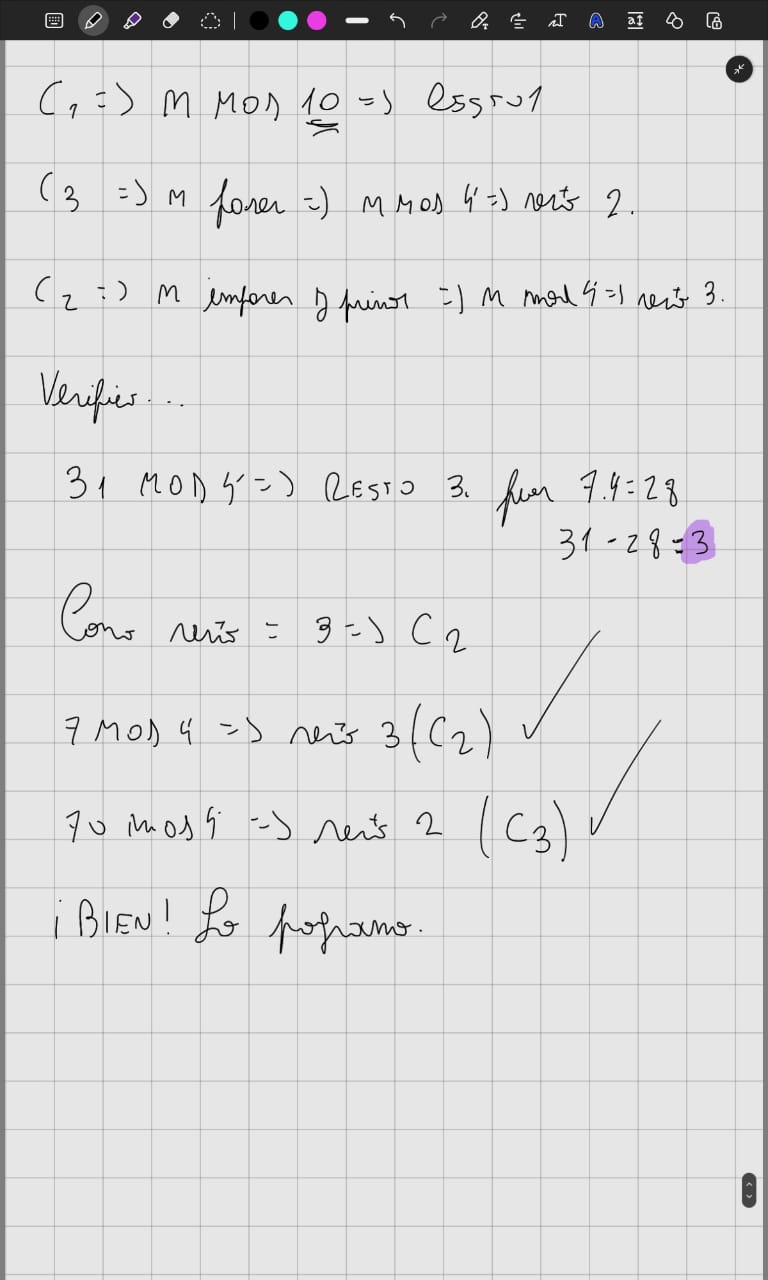 C1 => M MOD 10 => Resto 1
C3 => M => M MOD 4 => resto 2.
C2 => M y primo => M mod 4 => resto 3.
Verifico...
31 MOD 4 => RESTO 3. pues 7.4=28
31-28=3
Como resto = 3 => C2
7 MOD 4 => resto 3 (C2) ✓
70 MOD 4 => resto 2 (C3) ✓
¡BIEN! Lo programo.